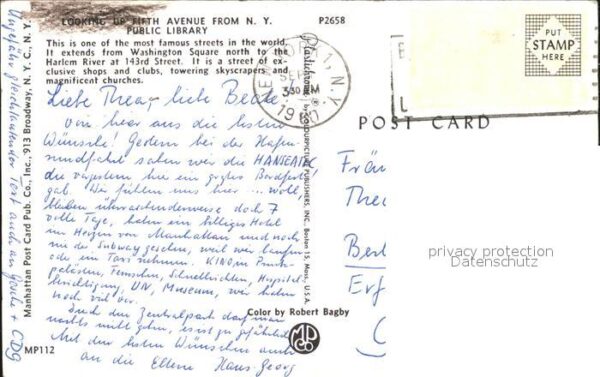 LOOKING UP FIFTH AVENUE FROM N. Y.
PUBLIC LIBRARY
P2658
This is one of the most famous streets in the world.
It extends from Washington Square north to the
Harlem River at 143rd Street. It is a street of ex-
clusive shops and clubs, towering skyscrapers and
magnificent churches.
Liebe Thea, liebe Beate
von hier aus die besten
Wünsche! Gestern bei der Hafen-
rundfahrt sahen wir die HANSEATIC,
die vorgestern hier ein großes Bordfest
gab. Wir fühlen uns hier wohl
bleiben überraschenderweise doch 7
volle Tage, haben ein billiges Hotel
im Herzen von Manhattan und noch
nie die Subway gesehen, weil wir laufen
oder ein Taxi nehmen. KINO in Prunk-
palästen, Fernsehen,
UN, Museum, wir haben
noch viel vor.
Durch den Zentralpark darf man
nachts nicht gehen, es ist zu gefährlich
Mit den besten Wünschen auch
an die Eltern Hans-Georg
Ungefähr gleichlautender Text auch an
Manhattan Post Card Pub. Co., Inc., 913 Broadway, N. Y. C., N. Y.
MP112
Plastichrome
PUBLISHERS, INC. Boston 15, Mass., U.S.A.
Color by Robert Bagby
NEW YORK 1, N.Y.
SEP
330 PM
1960
PUT
STAMP
HERE
POST CARD
Frä
Thea
Berl
Erf
privacy protection
Datenschutz